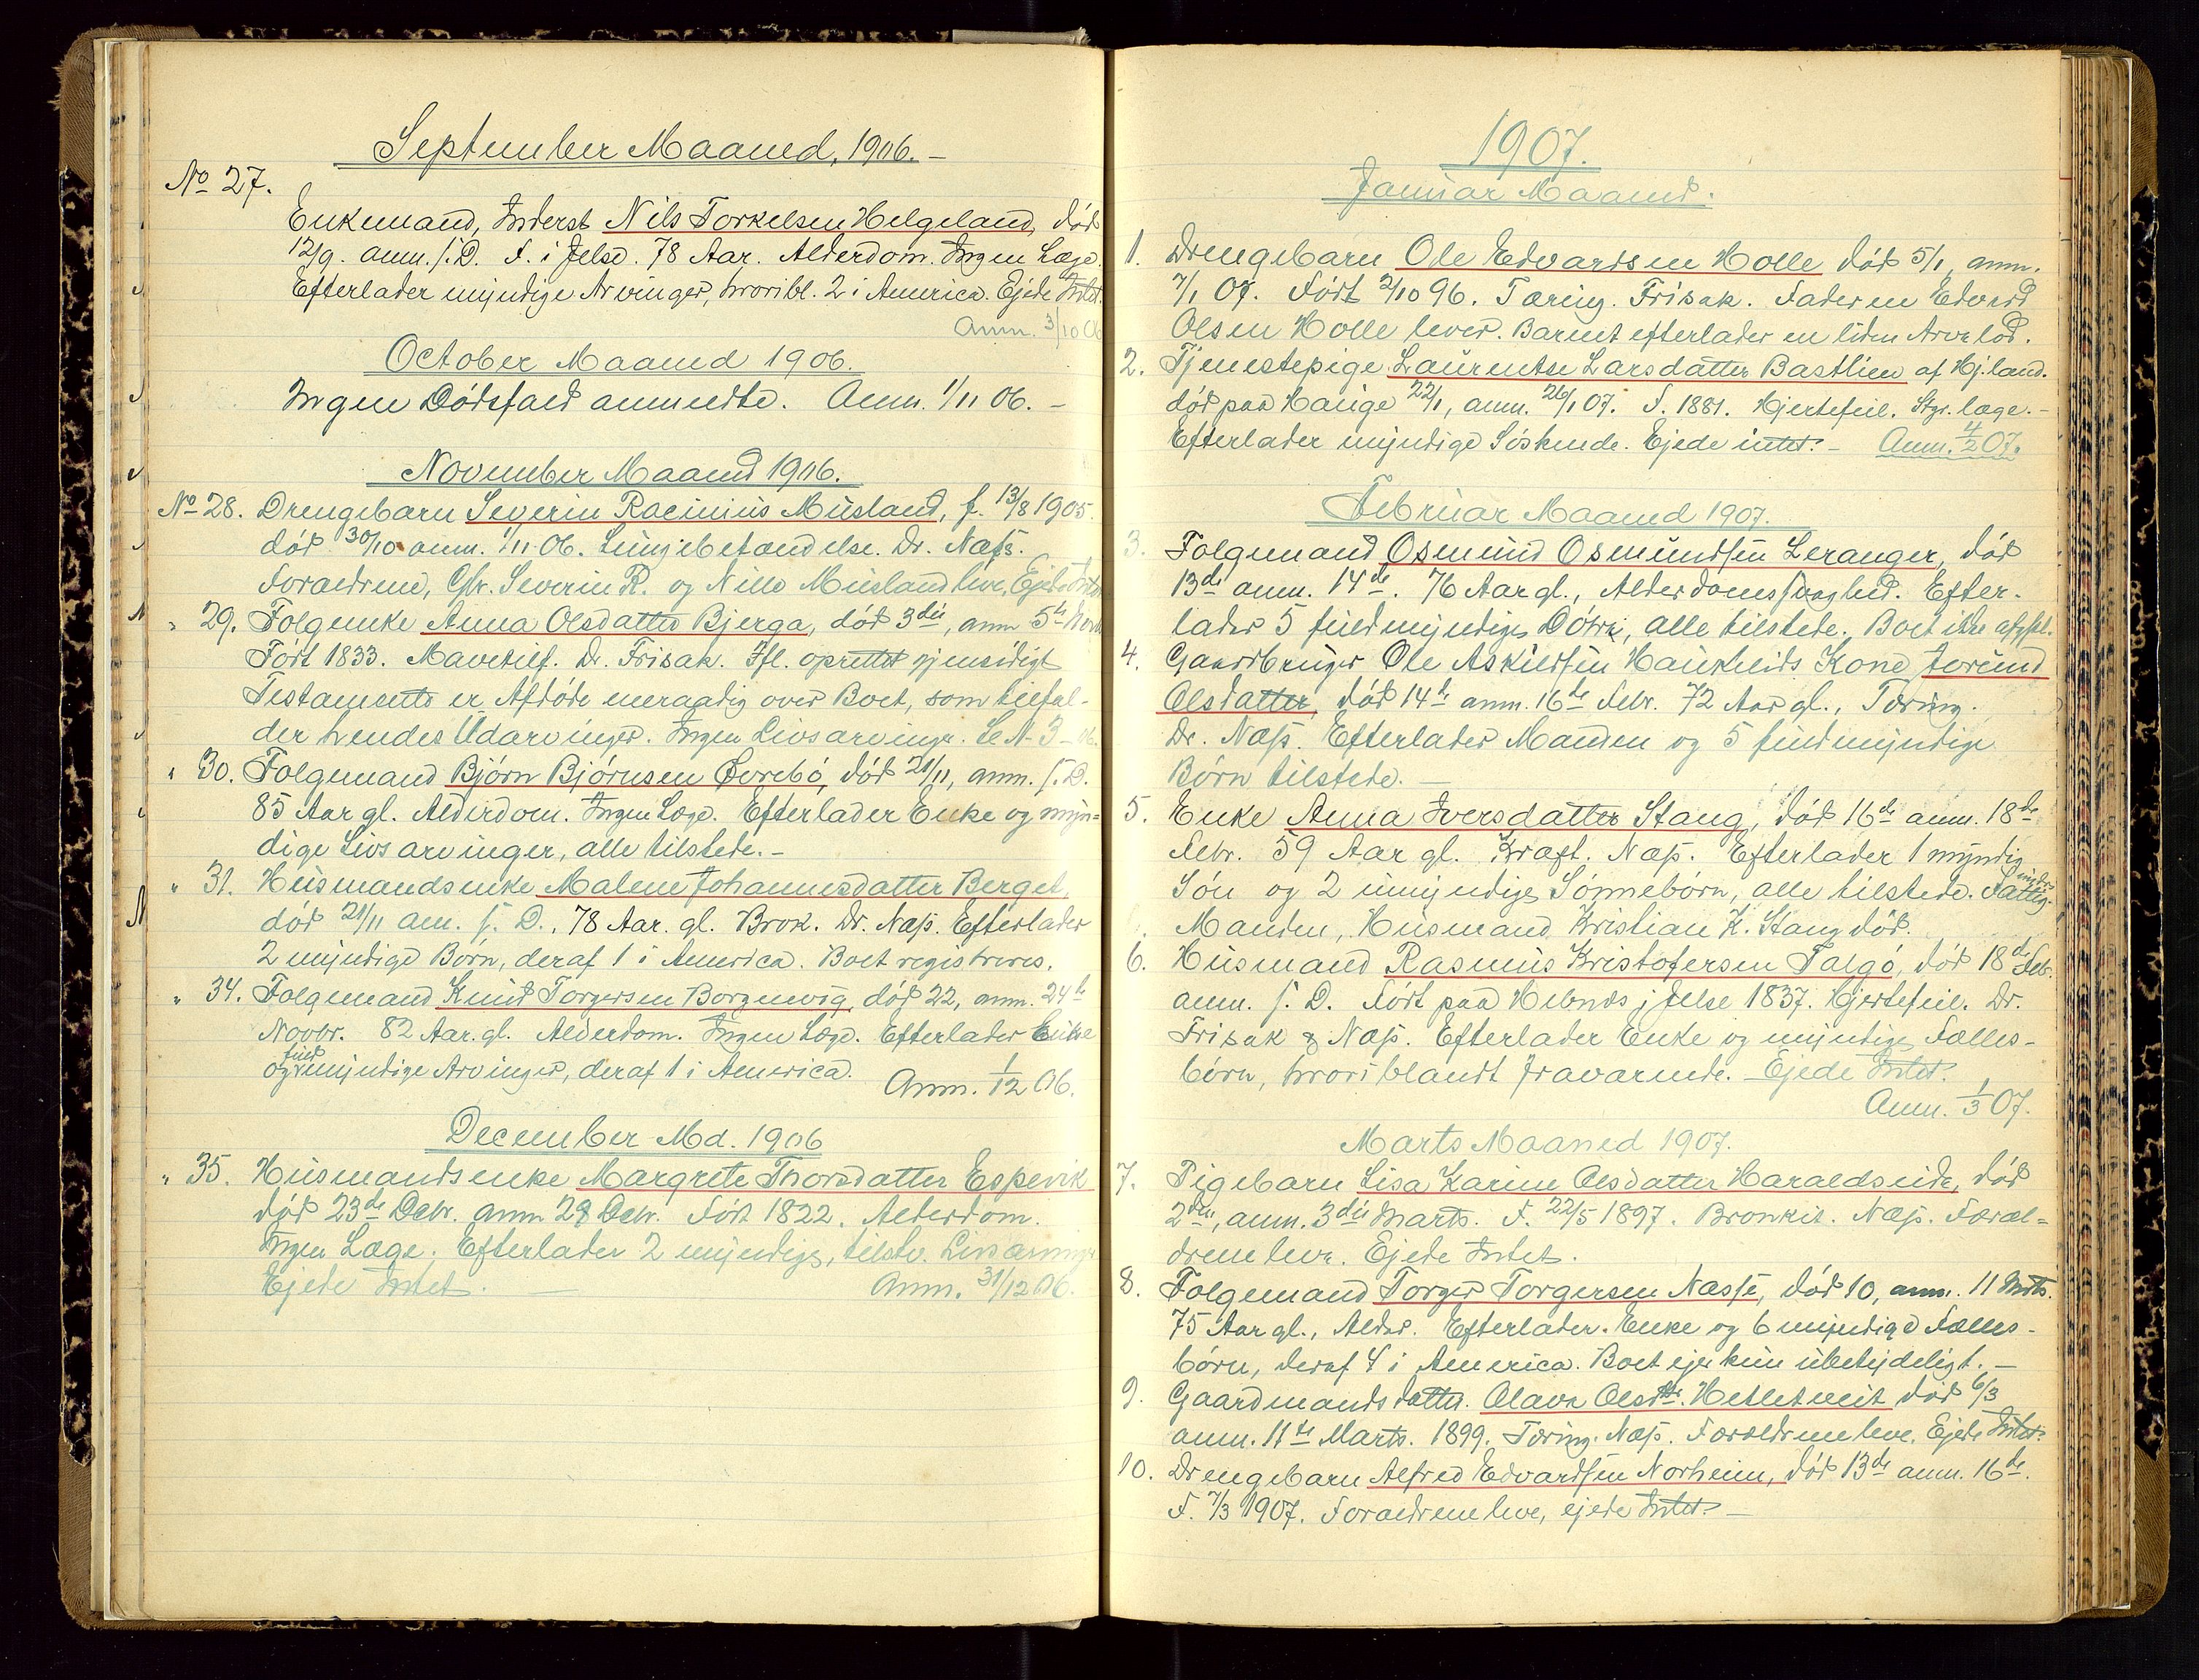 September Maaned, 1906. -
No 27.
Enkemand, Inderst Nils Torkelsen Helgeland, død
12/9. anm. s. D. F. i Jelse. 78 Aar. Alderdom. Ingen Læge.
Efterlader myndige Arvinger, hvoribl. 2 i America. Ejede Intet.
Anm. 3/10 06
October Maaned 1906.
Ingen Dødsfald anmeldte. Anm. 1/11 06. -
November Maaned 1906.
No 28. Drengebarn Severin Racinius Musland, f. 13/8 1905.
død 30/10 anm. 1/11 06. Lungebetændelse. Dr. Næss.
Foraeldrene, Gbr. Severin R. og Nille Musland leve. Ejede Intet
" 29. Folgeenke Anna Olsdatter Bjerga, død 3die, anm 5te Novb
Født 1833. Mavetilf. Dr. Frisak. Ifl. oprettet gjensidigt
Testamente er Afdøde eneraadig over Boet, som tilfal-
der hendes Udarvinger. Ingen Livsarvinger. Se N- 3 - 06.
" 30. Folgemand Bjørn Bjørnsen Øvrebø, død 21/11, anm. s. D.
85 Aar gl. Alderdom. Ingen Læge. Efterlader Enke og myn-
dige Livsarvinger, alle tilstede. -
" 31. Husmandsenke Malene Johannesdatter Berget,
død 21/11 am. s. D. 78 Aar. gl. Brok. Dr. Næss. Efterlader
2 myndige Børn, deraf 1 i America. Boet registreres.
" 34. Folgemand Knut Torgersen Borgenvig, død 22, anm. 24de
Novbr. 82 Aar. gl. Alderdom. Ingen Læge. Efterlader Enke
og fuldmyndige Arvinger, deraf 1 i America.
Anm. 1/12 06.
December Md. 1906
" 35. Husmandsenke Margrete Thorsdatter Espevik
død 23de Decbr. anm 28 Decbr. Født 1822. Alderdom.
Ingen Læge. Efterlader 2 myndige, tilstv. Livsarvinger
Ejede Intet. -
Anm. 31/12 06.
1907.
Januar Maaned.
1. Drengebarn Ole Edvardsen Holle død 5/1, anm.
7/1 07. Født 2/10 96. Tæring. Frisak. Faderen Edvard
Olsen Holle lever. Barnet efterlader en liden Arvelod.
2. Tjenestepige Laurentse Larsdatter Bastlien af Hj.land.
død paa Hauge 22/1, anm. 26/1 07. F. 1881. Hjertefeil. Stgr. læge. -
Efterlader myndige Søskende. Ejede intet. - Anm. 4/2 07.
Februar Maaned 1907.
3. Folgemand Osmund Osmundsen Leranger, død
13de anm. 14de. 76 Aar gl., Alderdomssvaghed. Efter-
lader 5 fuldmyndige Døtre, alle tilstede. Boet ikke
4. Gaardbruger Ole Askildsen Haukelids Kone Jorund
Olsdatter, død 14de anm. 16de Febr. 72 Aar gl., Tæring.
Dr. Næss. Efterlader Manden og 5 fuldmyndige
Børn tilstede. -
5. Enke Anna Iversdatter Stang, død 16de anm. 18de
Febr. 59 Aar gl. Kræft. Næss. Efterlader 1 myndig
Søn og 2 umyndige Sønnebørn, alle tilstede. Fattig.
Manden, Husmand Kristian K. Stang død.
6. Husmand Rasmus Kristofersen Folgø, død 18de Feb.
anm. s. D. Født paa Hebnes i Jelse 1837. Hjertefeil. Dr.
Frisak & Næss. Efterlader Enke og myndige Fælles-
børn, hvoriblandt fraværende. Ejede Intet.
Anm. 1/3 07.
Marts Maaned 1907.
7. Pigebarn Lisa Karine Olsdatter Haraldseide, død
2den, anm. 3die Marts. F. 22/5 1897. Bronkit. Næss. Foræl-
drene leve. Ejede Intet.
8. Folgemand Torger Torgersen Næsse, død 10, anm. 11 Mrts.
75 Aar gl., Alder. Efterlader Enke og 6 myndige Fælles-
børn, deraf 4 i America. Boet ejer kun ubetydeligt. -
9. Gaardmandsdatter Olava Olsdtr. Hetletveit død 6/3
anm. 11te Marts. 1899. Tæring. Næss. Forældrene leve. Ejede Intet.
10. Drengebarn Alfred Edvardsen Norheim, død 13de anm. 16de.
F. 7/3 1907. Foraeldrene leve, ejede Intet. -